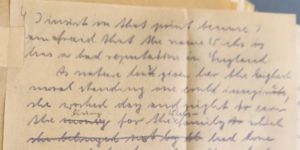 I insist on that point because I
am afraid that the name
has a bad reputation in England
As nature has given her the highest
moral standing one could imagine,
she worked day and night to earn
the money for the family to which
she belonged not by had done